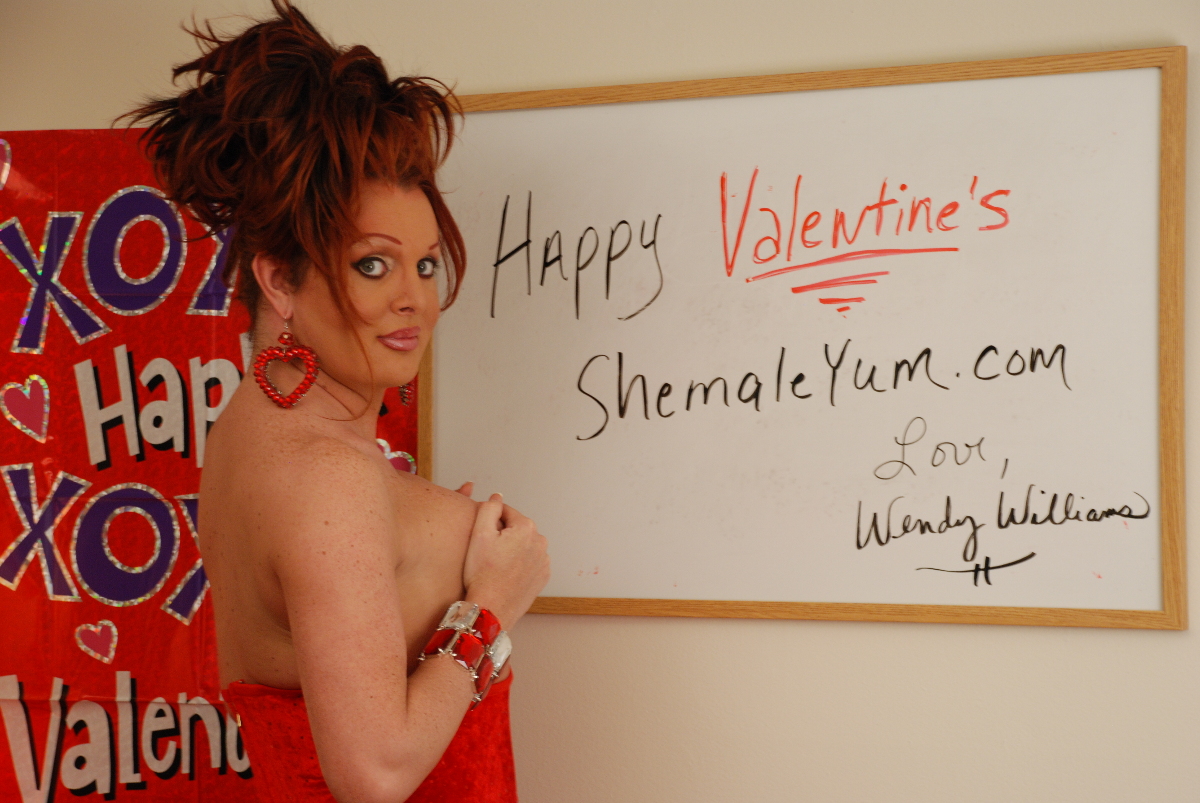 XOX
Hap
XOX
Valent
Happy Valentine's
ShemaleYum.com
Love,
Wendy Williams